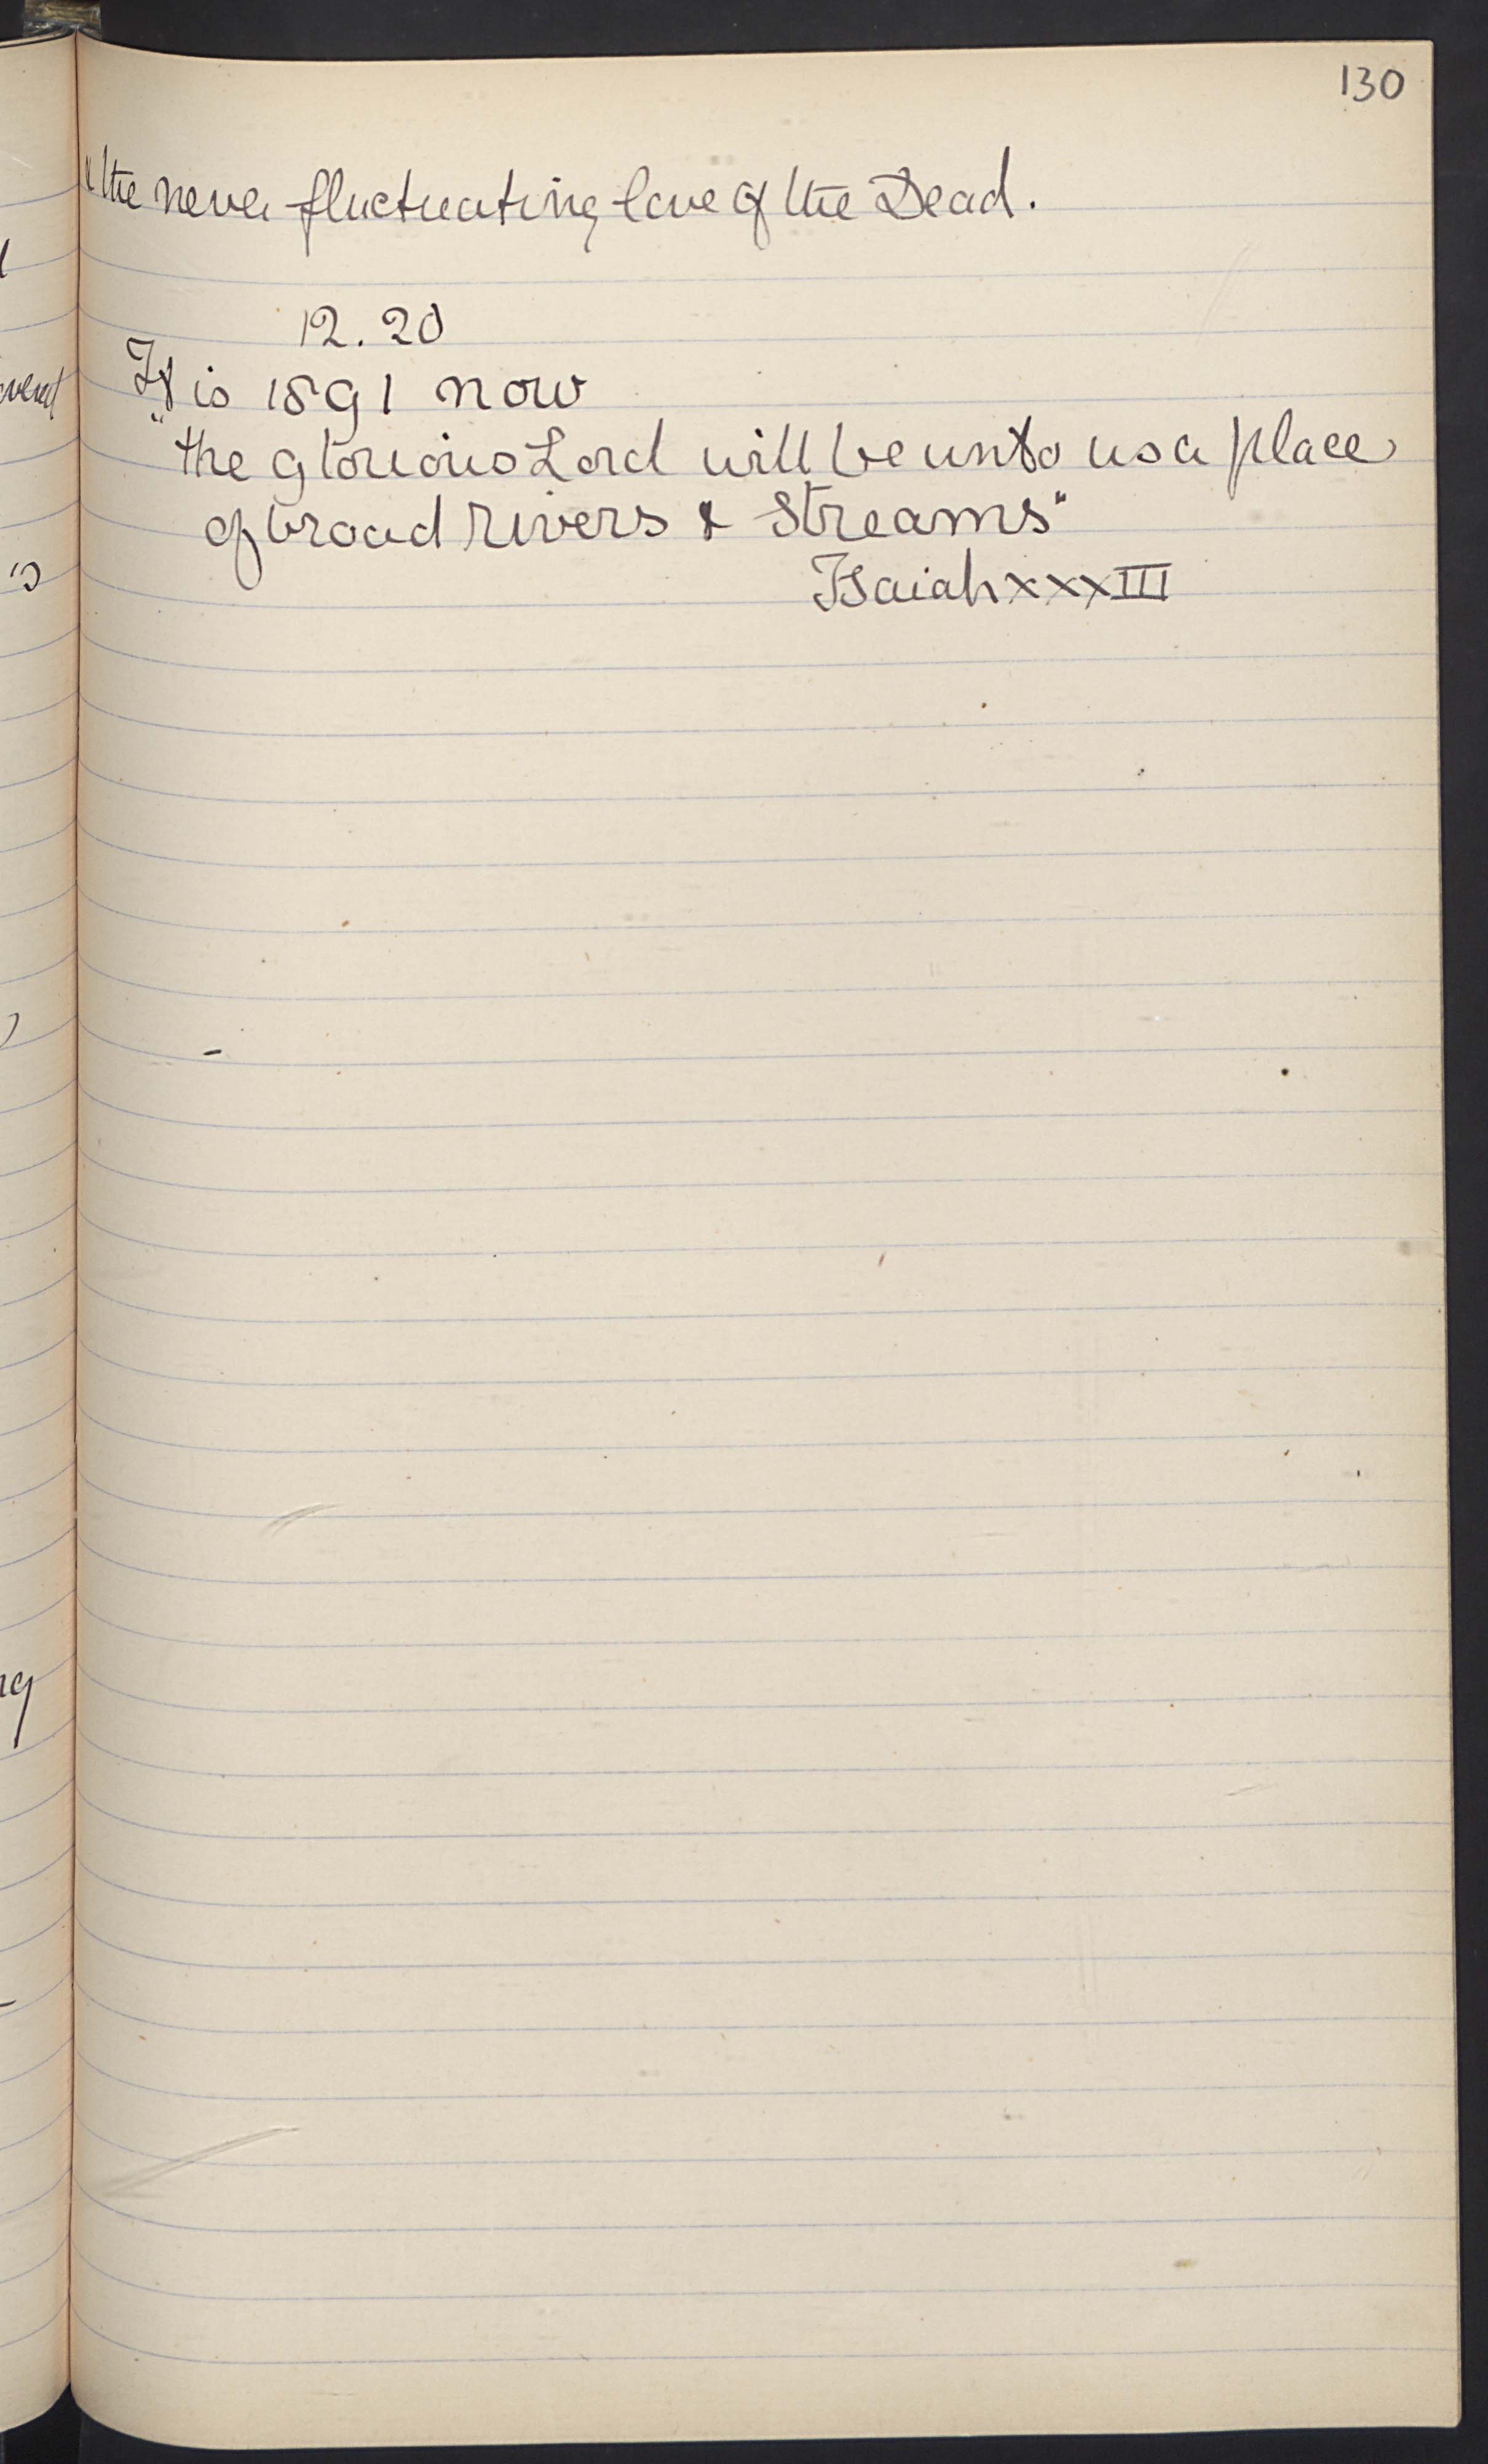 130
& the never fluctuating love of the Dead.
12.20
It is 1891 now
"the glorious Lord will be unto us a place
of broad rivers & Streams"
Isaiah xxxIII